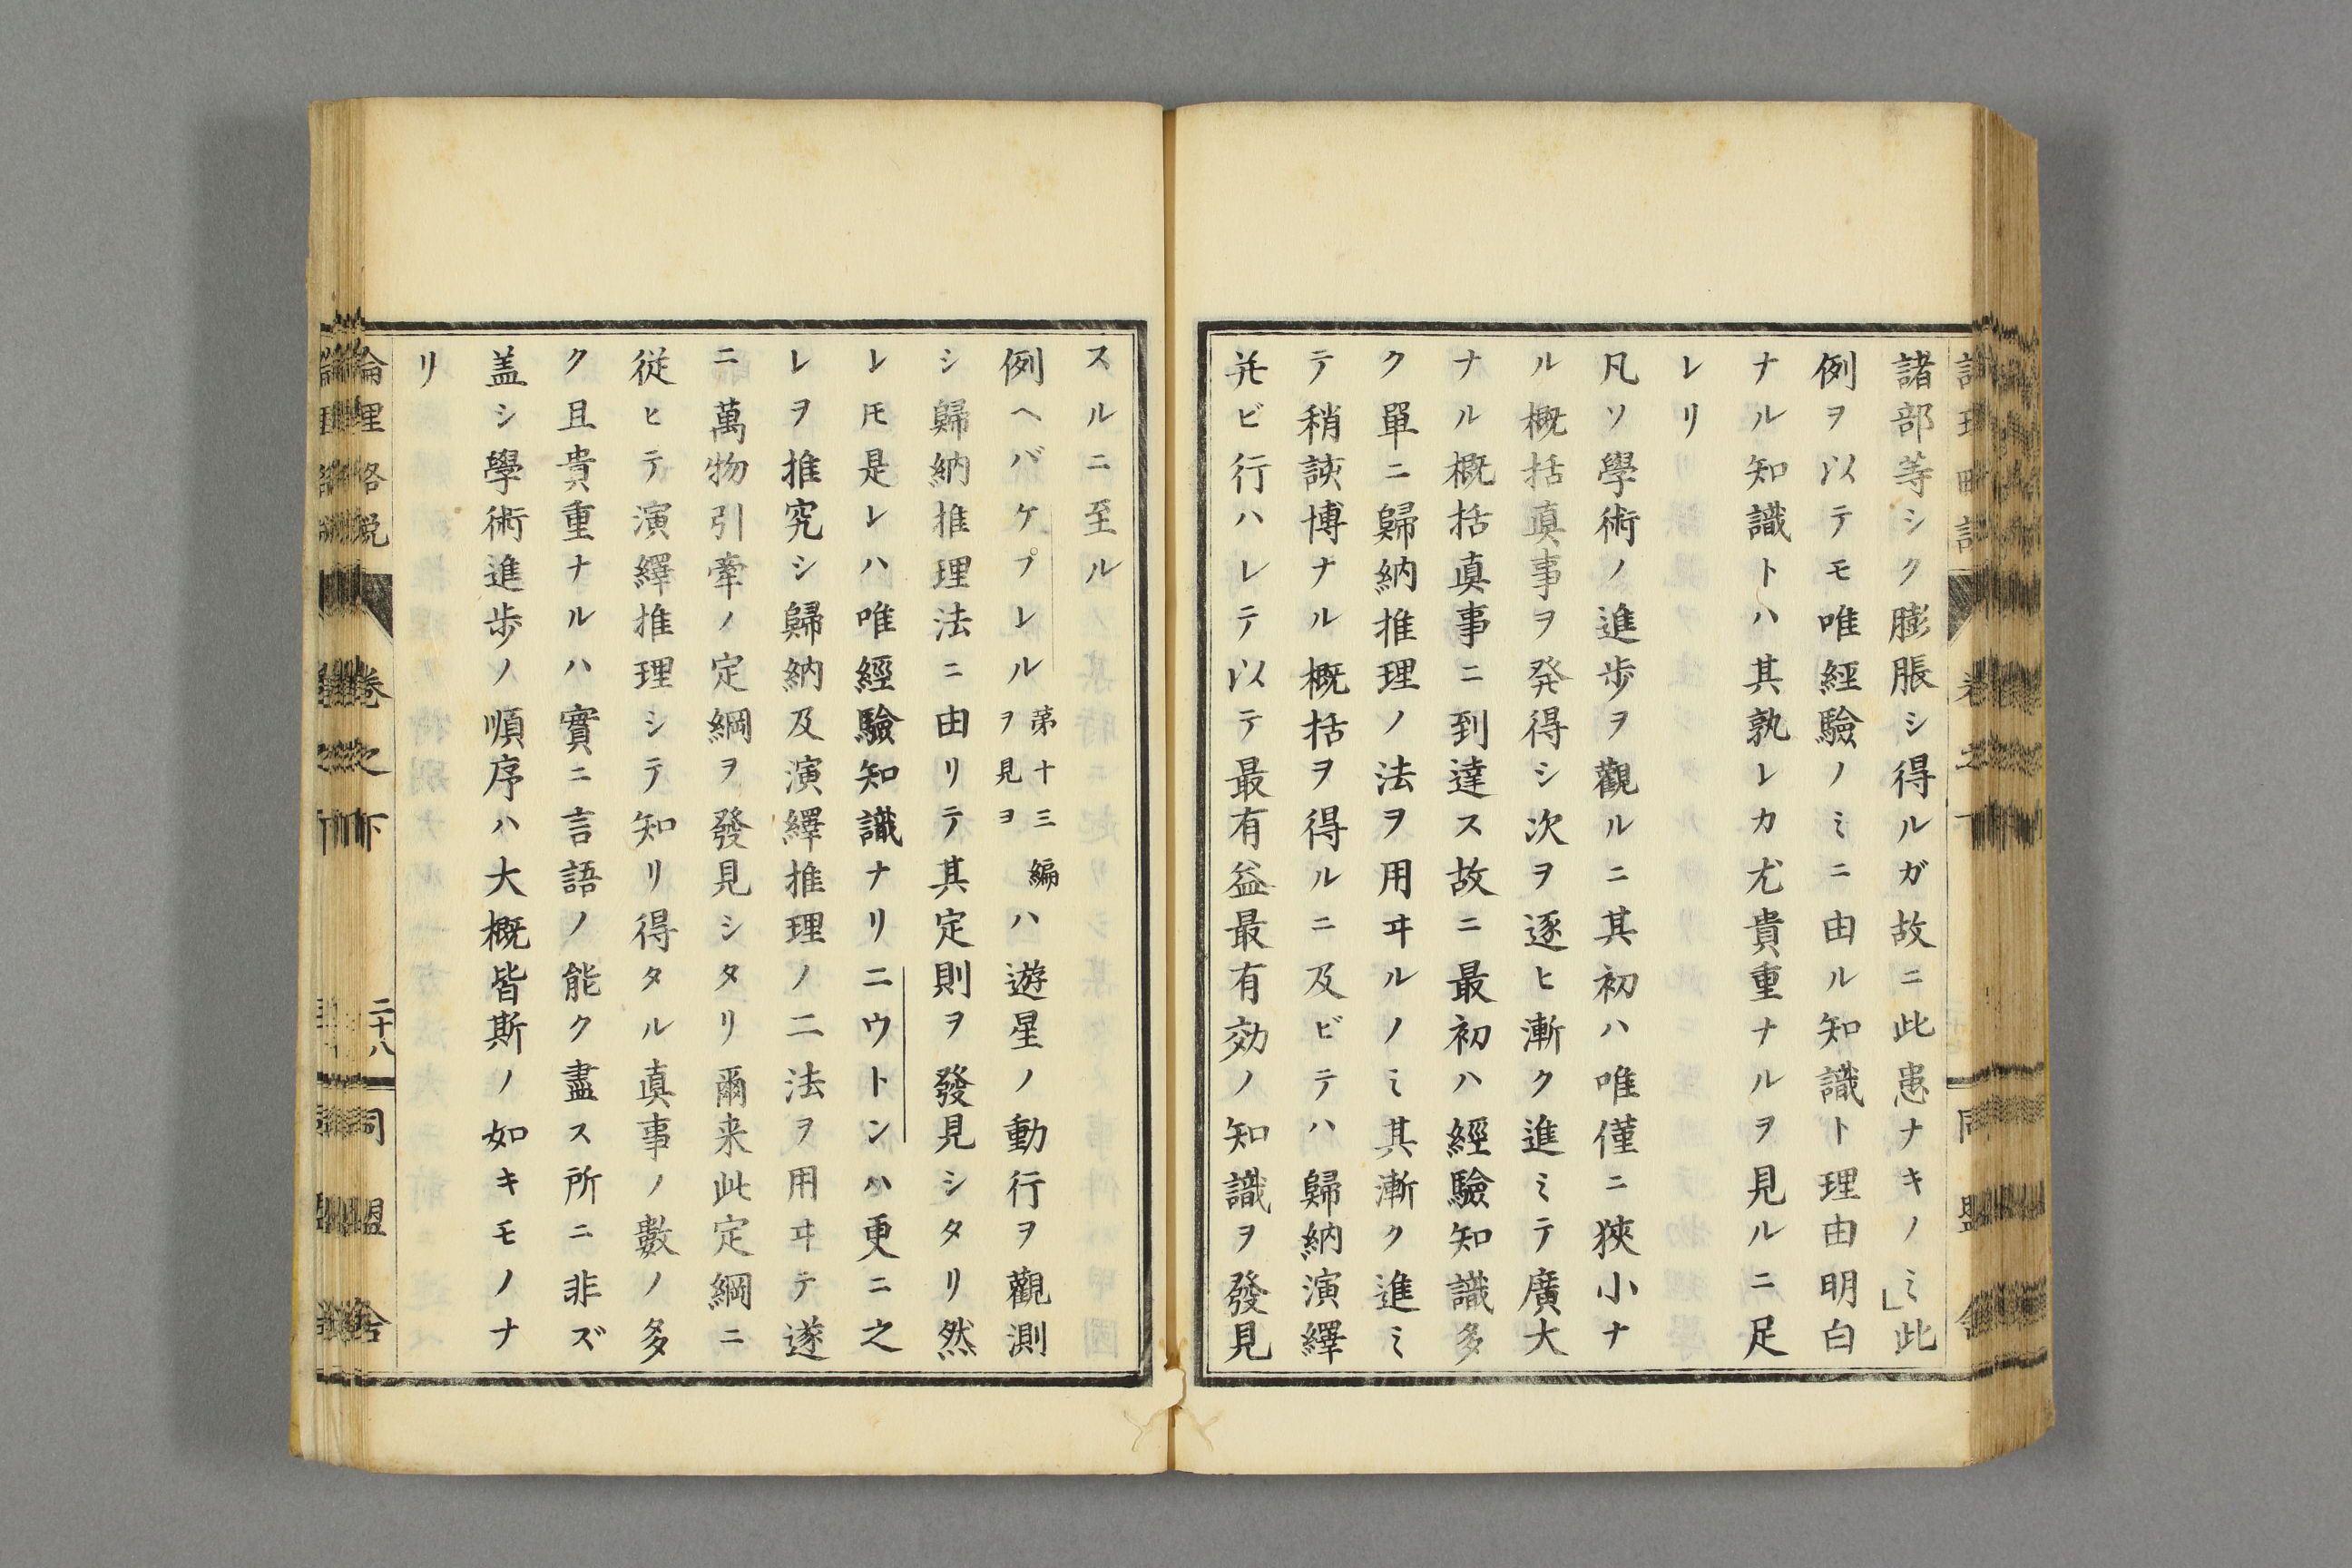 諸部等シク膨脹シ得ルガ故ニ此患ナキノミ」此
例ヲ以テモ唯經驗ノミニ由ル知識ト理由明白
ナル知識トハ其孰レカ尤貴重ナルヲ見ルニ足
レリ
凡ソ學術ノ進歩ヲ觀ルニ其初ハ唯僅ニ狹小ナ
ル概括真事ヲ発得シ次ヲ逐ヒ漸ク進ミテ廣大
ナル概括真事ニ到達ス故ニ最初ハ經驗知識多
ク單ニ歸納推理ノ法ヲ用ヰルノミ其漸ク進ミ
テ稍該博ナル概括ヲ得ルニ及ビテハ歸納演繹
并ビ行ハレテ以テ最有益最有効ノ知識ヲ發見
スルニ至ル
例ヘバケプレル第十三編ヲ見ヨハ遊星ノ動行ヲ觀測
シ歸納推理法ニ由リテ其定則ヲ發見シタリ然
レ𪜈是レハ唯經驗知識ナリニウトンハ更ニ之
レヲ推究シ歸納及演繹推理ノ二法ヲ用ヰテ遂
ニ萬物引牽ノ定綱ヲ發見シタリ爾来此定綱ニ
従ヒテ演繹推理シテ知リ得タル真事ノ數ノ多
ク且貴重ナルハ實ニ言語ノ能ク盡ス所ニ非ズ
盖シ學術進歩ノ順序ハ大概皆斯ノ如キモノナ
リ
論理畧説
卷之下
二十八
同盟舍